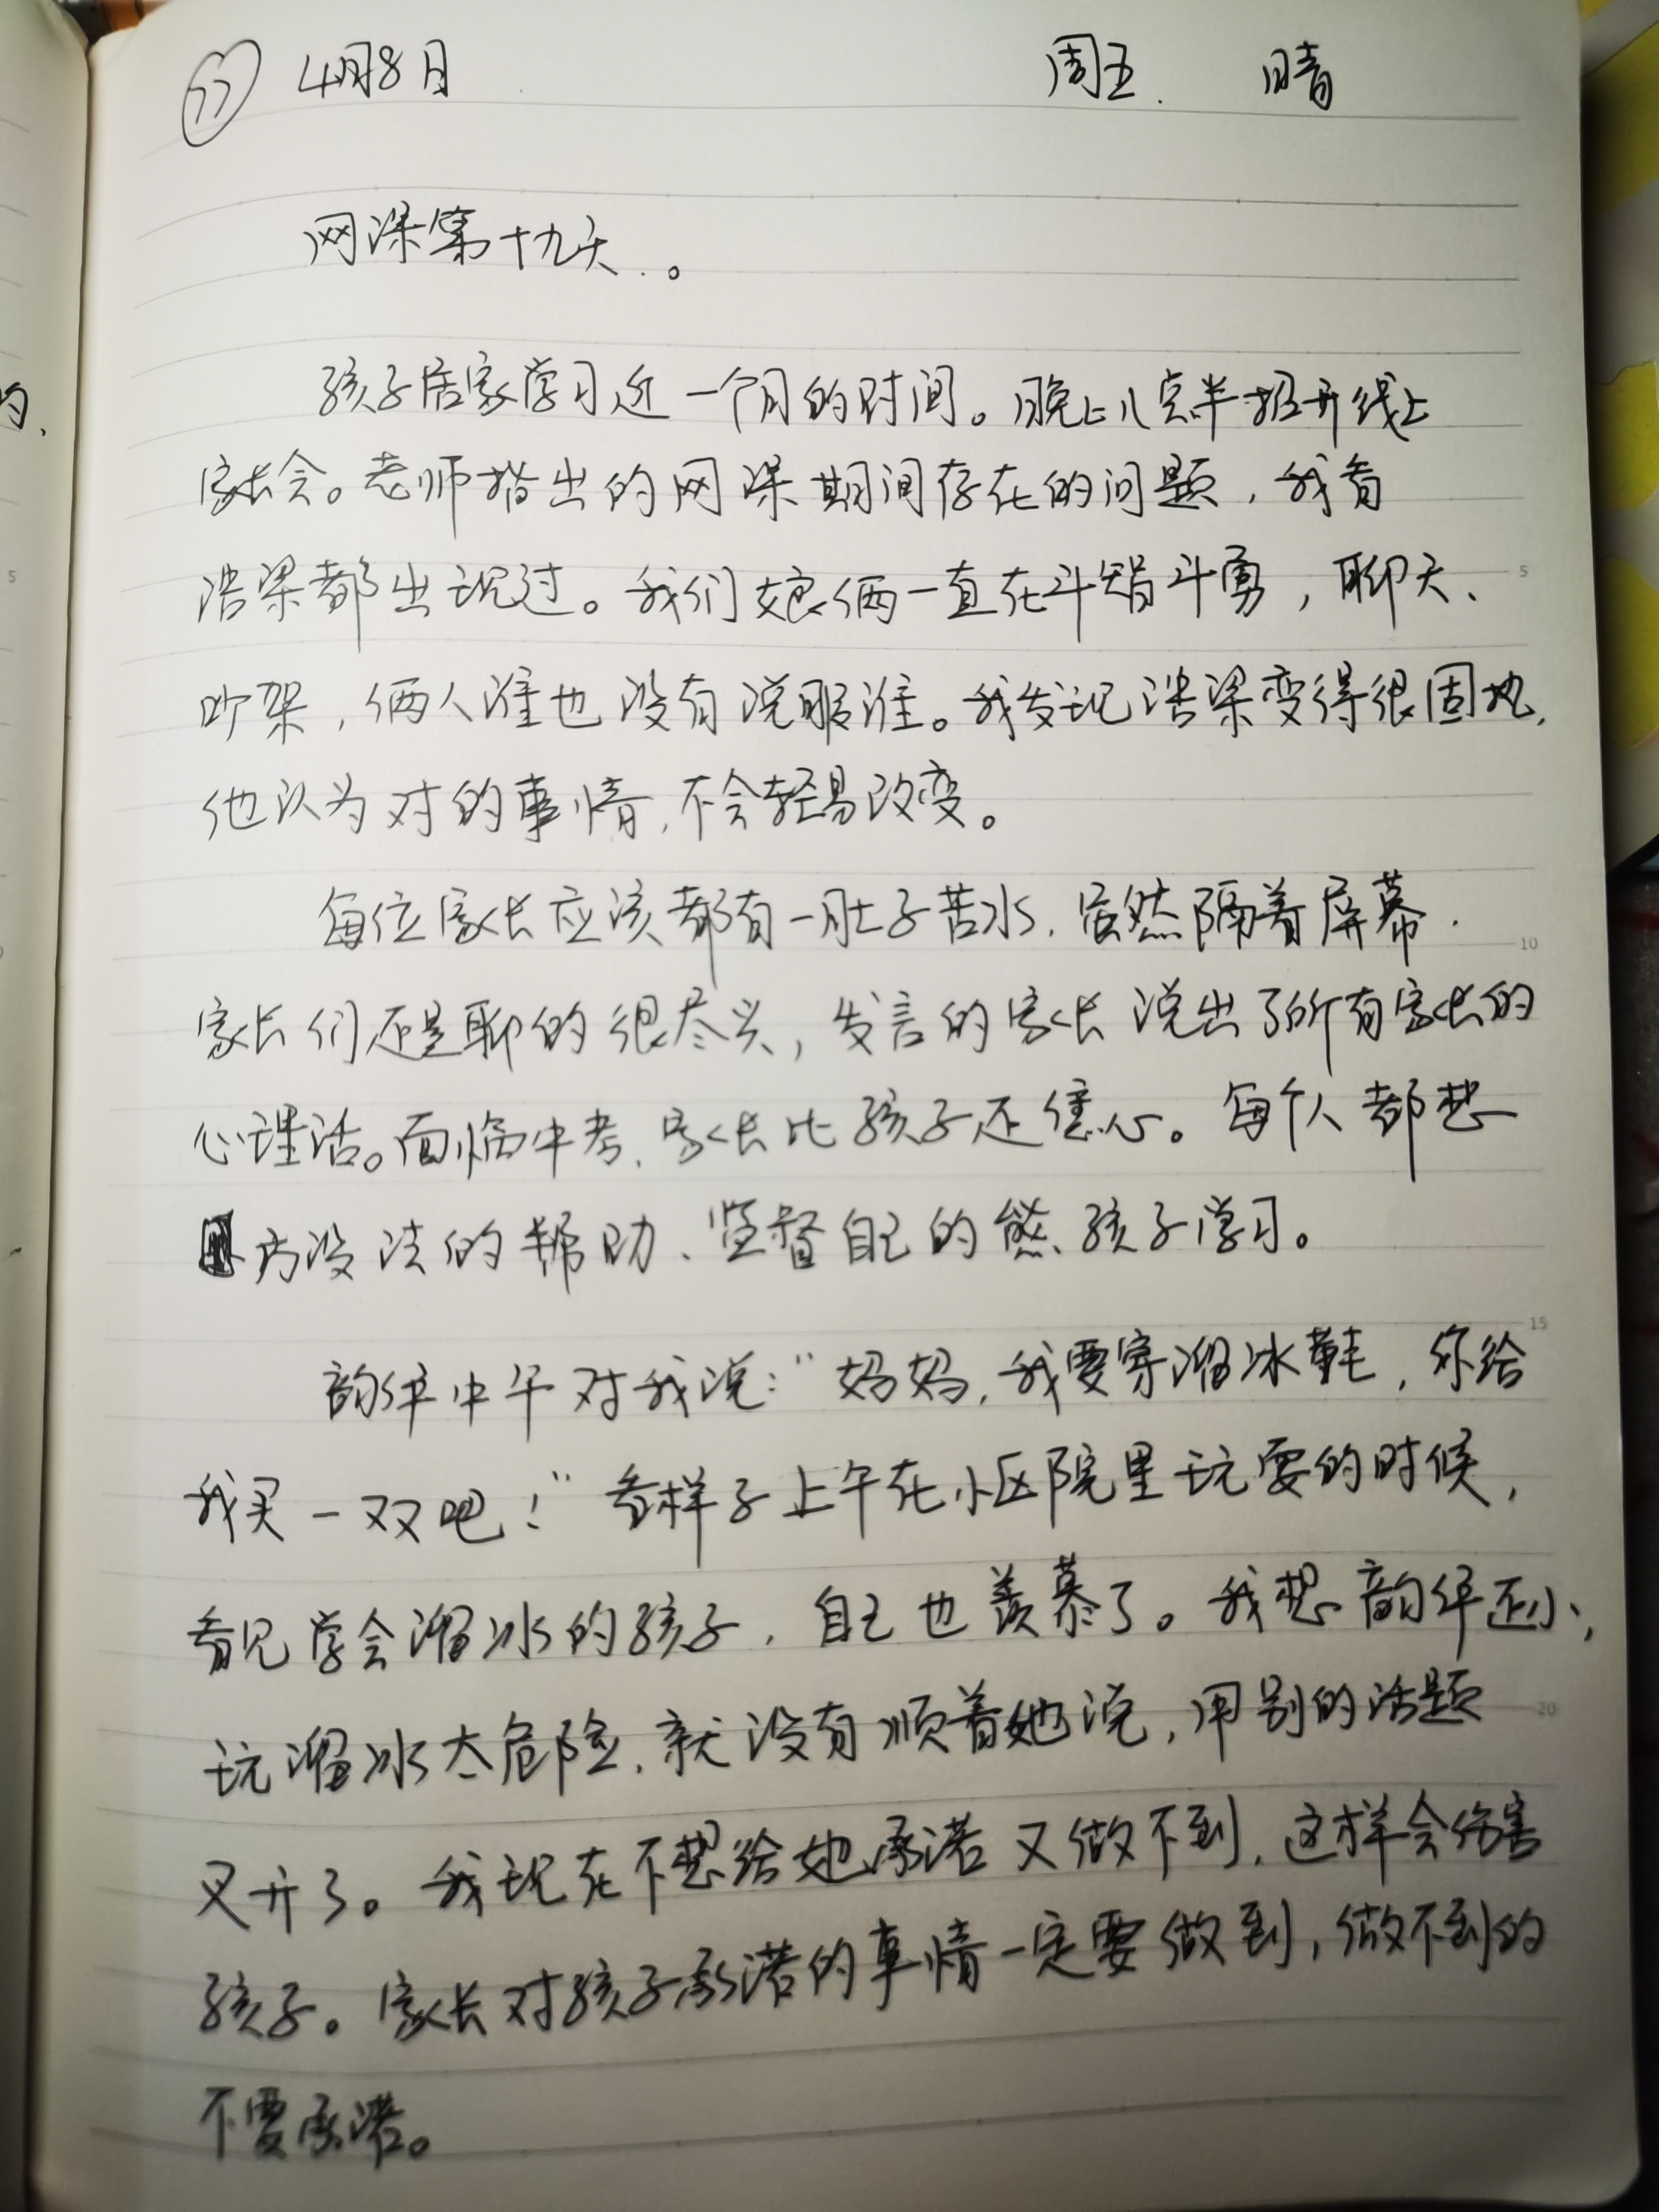 77 4月8日 周五. 晴
网课第十九天.。
孩子居家学习近一个月的时间。晚上八点半招开线上
家长会。老师指出的网课期间存在的问题，我看
浩梁都出现过。我们娘俩一直在斗智斗勇，聊天、
吵架，俩人谁也没有说服谁。我发现浩梁变得很固执，
他认为对的事情，不会轻易改变。
每位家长应该都有一肚子苦水，虽然隔着屏幕.
家长们还是聊的很尽兴，发言的家长说出了所有家长的
心理话。面临中考，家长比孩子还信心。每个人都想
方没法的帮助、监督自己的熊孩子学习。
韵伊中午对我说：“妈妈，我要穿溜冰鞋，你给
我买一双吧！”看样子上午在小区院里玩耍的时候，
看见学会溜冰的孩子，自己也羡慕了。我想韵伊还小，
玩溜冰太危险，就没有顺着她说，用别的话题
叉开了。我现在不想给她承诺又做不到，这样会伤害
孩子。家长对孩子承诺的事情一定要做到，做不到的
不要承诺。
5
10
15
20
5
的、